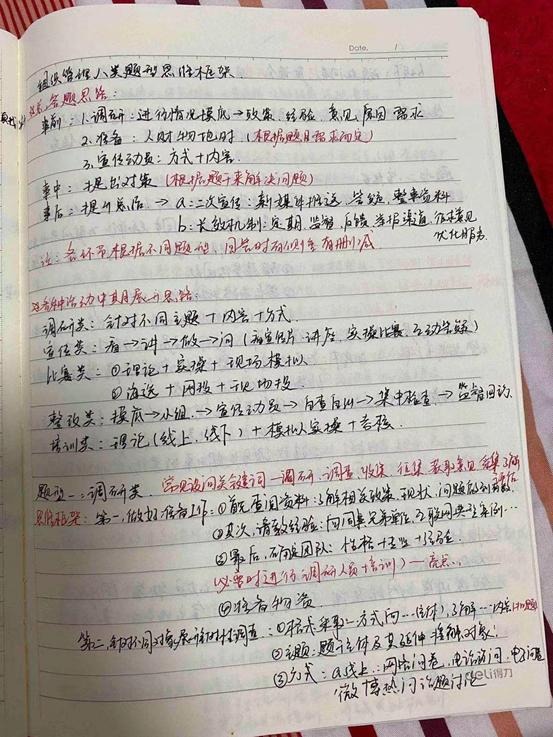 Date. /
组织管理八类题型思维框架
一、答题思路:
事前:1.调研:进行情况摸底→政策 经验 意见 原因 需求
2.准备:人财物地时(根据题目需求而定)
3.宣传动员:方式+内容.
事中:提出对策(根据题干来解决问题)
事后:提升总结→a:二次宣传:新媒体推送,总结,整理资料
b:长效机制:定期,监督,反馈,举报渠道,征求意见
优化服务.
注:各环节根据不同题型,回答时有侧重有删减
各种活动中其月展开思路:
调研类:针对不同主题+内容+方式.
宣传类:看→讲→做→问(看宣传片 讲座,实操比赛,互动答疑)
比赛类:①理论+实操+现场模拟
②海选+网投+现场投
整改类:摸底→小组→宣传动员→自查自纠→集中检查→监督回访
培训类:理论(线上,线下)+模拟实操+考核.
题型一:调研类. 常见设问关键词—调研、调查,收集,征集,
思维框架:第一,做好准备工作:①首先查阅资料:了解相关政策,现状,问题
②其次,请教经验:向同事兄弟单位,互联网典型案例…
③最后,组团队:性格+专业+经验
(必要时进行调研人员培训)—亮点.
④准备物资
第二,针对不同对象,展开调查:①格式采取…方式向…(主体),了解…内容
②主题:题干主体及其延伸
③方式:a线上:网络问卷,电话访问,
微博热门话题讨论
deli得力